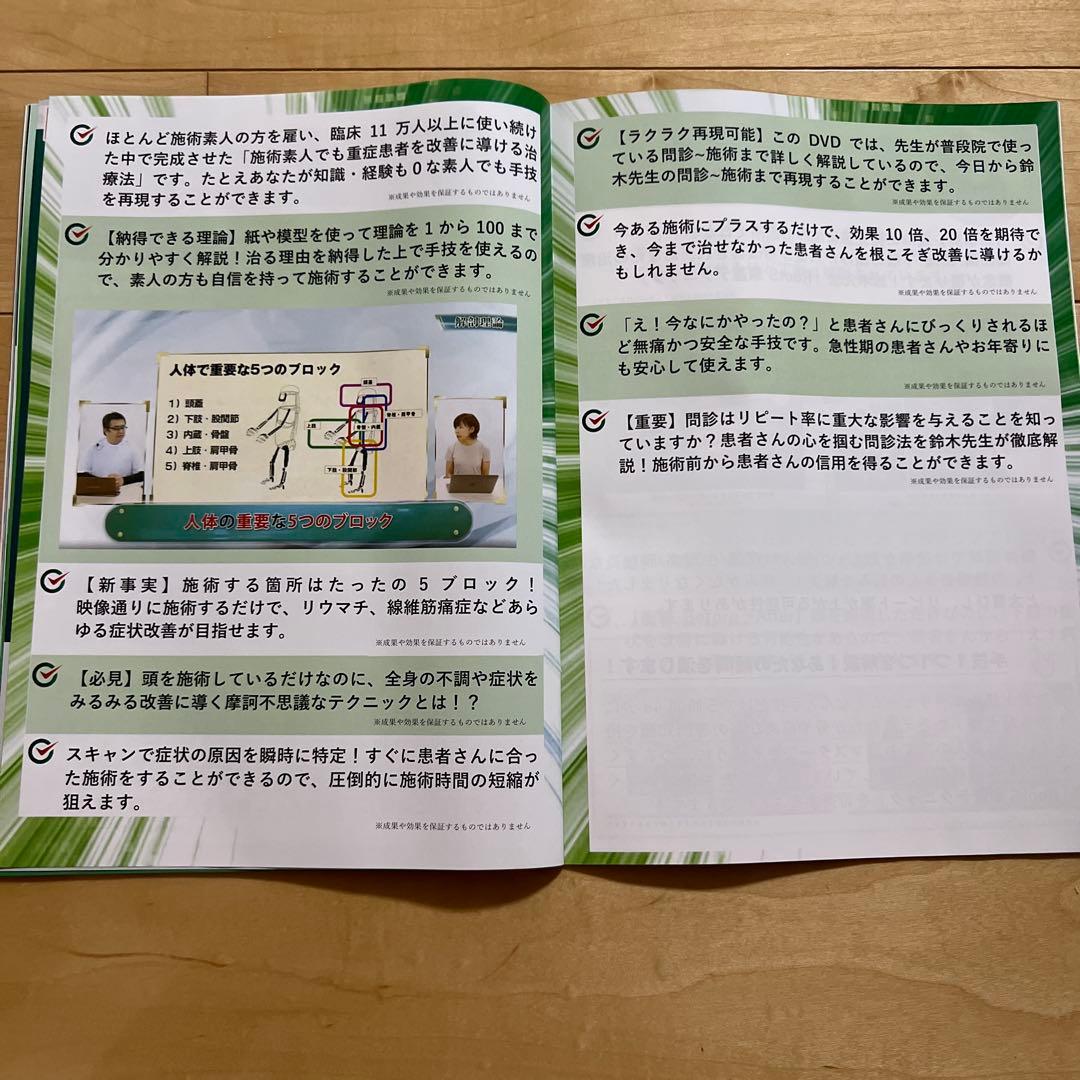 ほとんど施術素人の方を雇い、臨床 11 万人以上に使い続け
た中で完成させた「施術素人でも重症患者を改善に導ける治
療法」です。たとえあなたが知識・経験も０な素人でも手技
を再現することができます。
※成果や効果を保証するものではありません
【納得できる理論】紙や模型を使って理論を 1 から 100 まで
分かりやすく解説！治る理由を納得した上で手技を使えるの
で、素人の方も自信を持って施術することができます。
※成果や効果を保証するものではありません
解剖理論
人体で重要な5つのブロック
1）頭蓋
2）下肢・股関節
3）内蔵・骨盤
4）上肢・肩甲骨
5）脊椎・肩甲骨
頭蓋
脊椎・肩甲骨
上肢
骨盤・内蔵
下肢・股関節
人体の重要な5つのブロック
【新事実】施術する箇所はたったの 5 ブロック！
映像通りに施術するだけで、リウマチ、線維筋痛症などあら
ゆる症状改善が目指せます。
※成果や効果を保証するものではありません
【必見】頭を施術しているだけなのに、全身の不調や症状を
みるみる改善に導く摩訶不思議なテクニックとは！？
※成果や効果を保証するものではありません
スキャンで症状の原因を瞬時に特定！すぐに患者さんに合っ
た施術をすることができるので、圧倒的に施術時間の短縮が
狙えます。
※成果や効果を保証するものではありません
【ラクラク再現可能】この DVD では、先生が普段院で使っ
ている問診~施術まで詳しく解説しているので、今日から鈴
木先生の問診~施術まで再現することができます。
※成果や効果を保証するものではありません
今ある施術にプラスするだけで、効果 10 倍、20 倍を期待で
き、今まで治せなかった患者さんを根こそぎ改善に導けるか
もしれません。
※成果や効果を保証するものではありません
「え！今なにかやったの？」と患者さんにびっくりされるほ
ど無痛かつ安全な手技です。急性期の患者さんやお年寄りに
も安心して使えます。
※成果や効果を保証するものではありません
【重要】問診はリピート率に重大な影響を与えることを知っ
ていますか？患者さんの心を掴む問診法を鈴木先生が徹底解
説！施術前から患者さんの信用を得ることができます。
※成果や効果を保証するものではありません